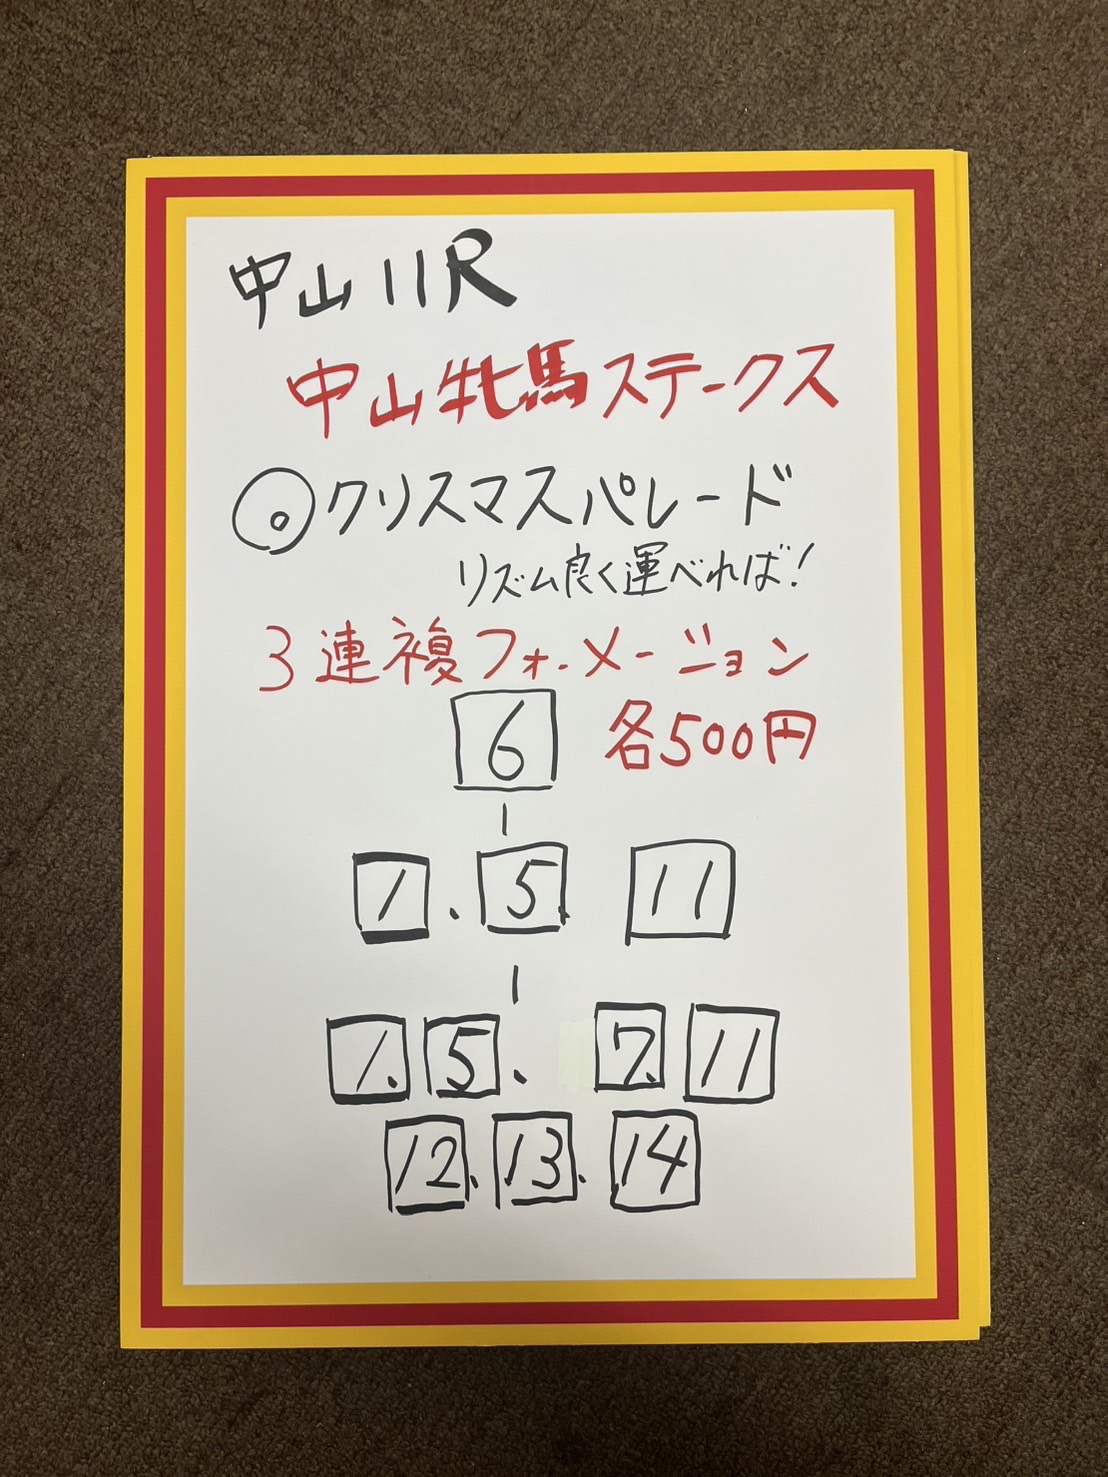 中山11R
中山牝馬ステークス
◎クリスマスパレード
リズム良く運べれば!
3連複フォーメーション
6 各500円
|
1.5 11
|
1.5.7.11
12.13.14